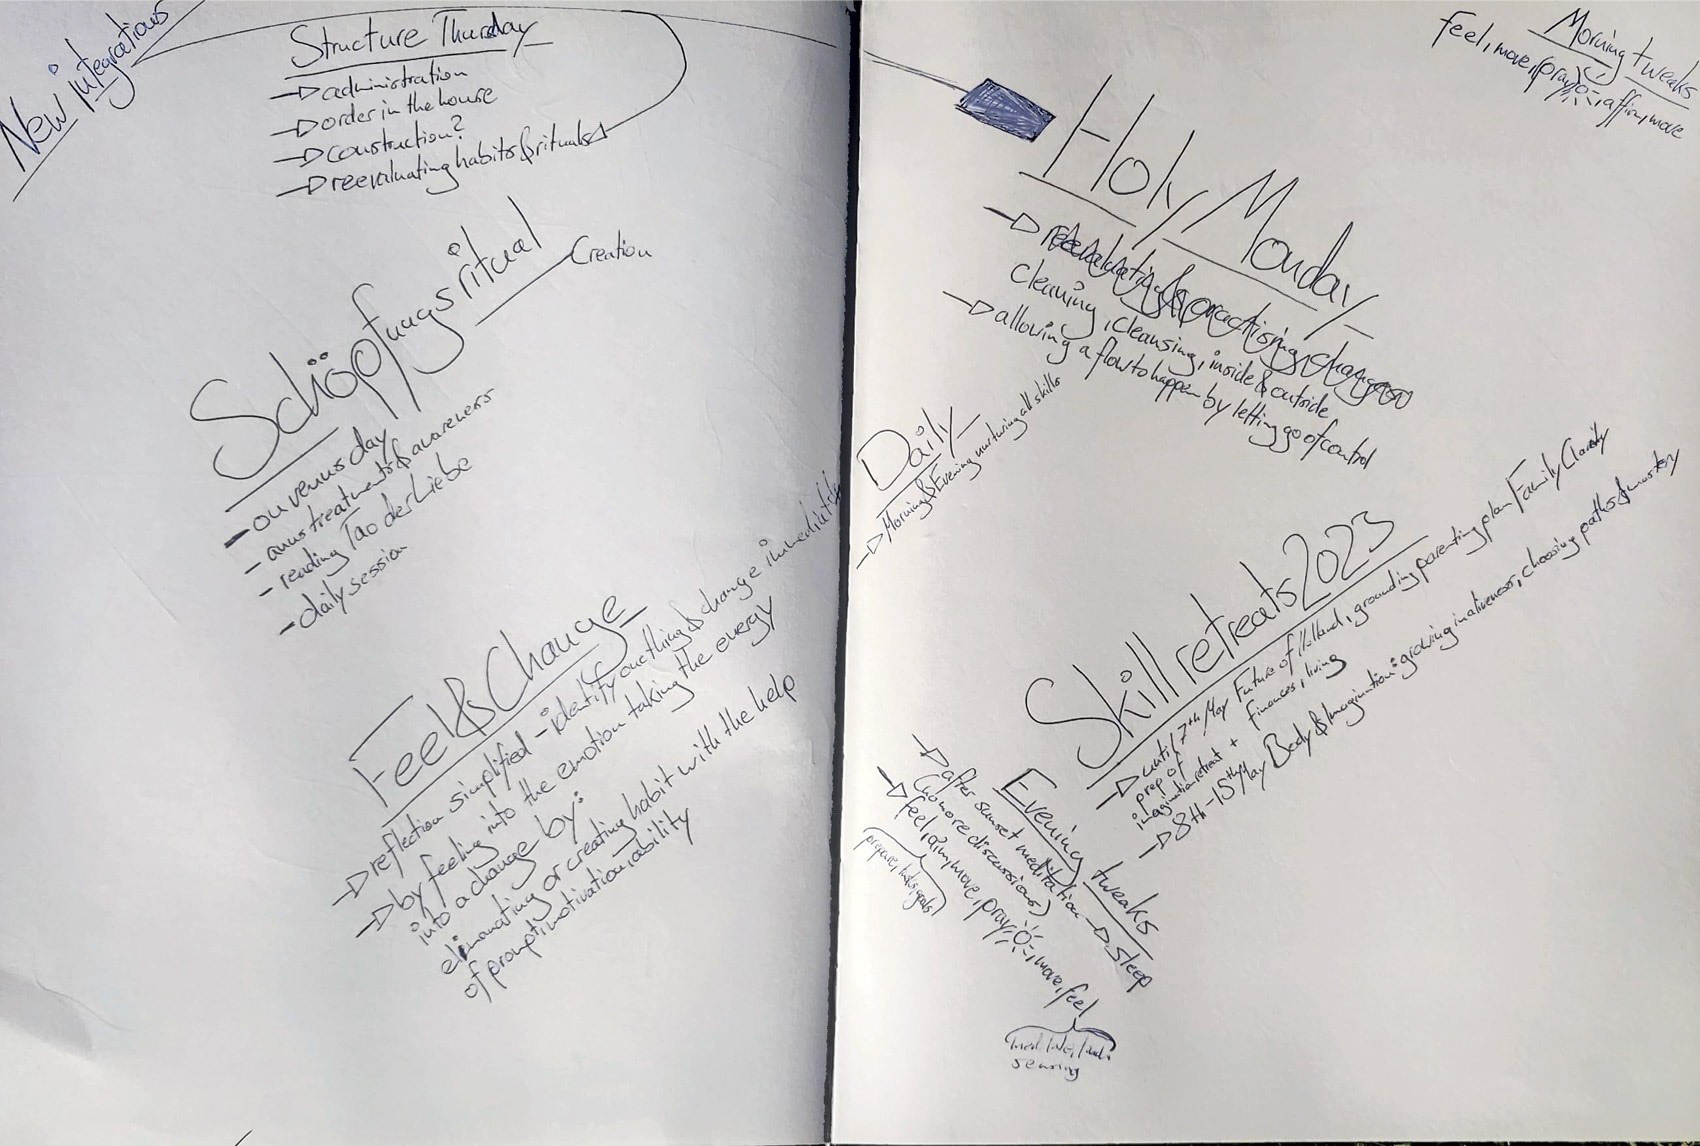 New Integrations
Structure Thursday
administration
order in the house
construction?
reevaluating habits & rituals
Schöpfungsritual
Creation
- on venus day
- anustreatments & awareness
- reading Tao der Liebe
- daily session
Feel & Change
reflection simplified - identify one thing & change immediately
by feeling into the emotion taking the energy
into a change by:
eliminating or creating habit with the help
of prompt, motivation, ability
Morning tweaks
feel, move, (pray), affirm, move
Holy Monday
reevaluating & practising changes
cleaning, cleansing, inside & outside
allowing a flow to happen by letting go of control
Daily
Morning & Evening nurturing all skills
Skill retreats 2023
until 7th May Future of Holland, grounding parenting plan Family Clarity
prep of
imagination retreat + finances, living
8th - 15th May Body & Imagination: growing in aliveness, choosing paths & mastery
Evening tweaks
after sunset meditation → sleep
(no more discussions)
feel, aim, move, pray, move, feel
prepare, goals
sensing